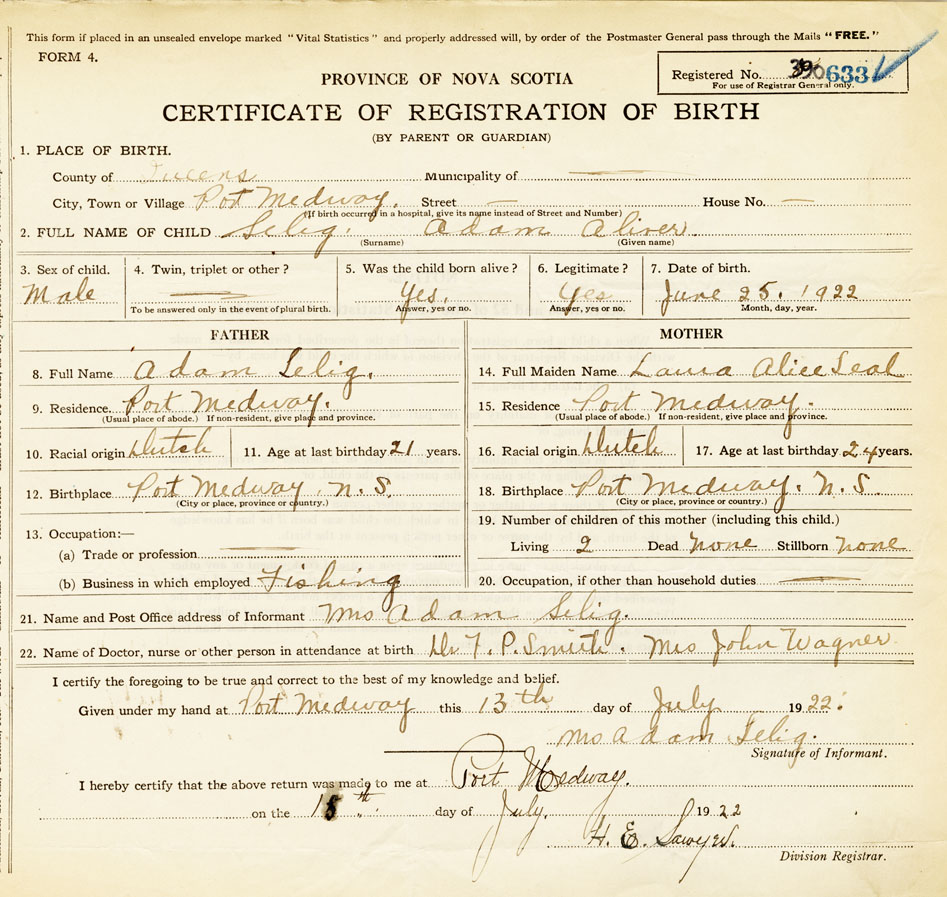 This form if placed in an unsealed envelope marked "Vital Statistics" and properly addressed will, by order of the Postmaster General pass through the Mails "FREE."
FORM 4.
PROVINCE OF NOVA SCOTIA
Registered No. 633
For use of Registrar General only.
CERTIFICATE OF REGISTRATION OF BIRTH
(BY PARENT OR GUARDIAN)
1. PLACE OF BIRTH.
County of Queens Municipality of —
City, Town or Village Port Medway. Street — House No. —
(If birth occurred in a hospital, give its name instead of Street and Number)
2. FULL NAME OF CHILD Selig. Adam Aliver
(Surname) (Given name)
3. Sex of child. 4. Twin, triplet or other? 5. Was the child born alive? 6. Legitimate? 7. Date of birth.
Male — Yes. Yes June 25. 1922
To be answered only in the event of plural birth. Answer, yes or no. Answer, yes or no. Month, day, year.
FATHER
8. Full Name Adam Selig.
9. Residence. Port Medway.
(Usual place of abode.) If non-resident, give place and province.
10. Racial origin Dutch 11. Age at last birthday 21 years.
12. Birthplace Port Medway, N.S.
(City or place, province or country.)
13. Occupation:—
(a) Trade or profession —
(b) Business in which employed Fishing
MOTHER
14. Full Maiden Name Laura Alice Leal
15. Residence Port Medway.
(Usual place of abode.) If non-resident, give place and province.
16. Racial origin Dutch 17. Age at last birthday 24 years.
18. Birthplace Port Medway. N.S.
(City or place, province or country.)
19. Number of children of this mother (including this child.)
Living 2 Dead None Stillborn None
20. Occupation, if other than household duties —
21. Name and Post Office address of Informant Mrs Adam Selig.
22. Name of Doctor, nurse or other person in attendance at birth Dr F. P. Smith. Mrs John Wagner
I certify the foregoing to be true and correct to the best of my knowledge and belief.
Given under my hand at Port Medway this 13th day of July 1922.
Mrs Adam Selig.
Signature of Informant.
I hereby certify that the above return was made to me at Port Medway.
on the 18th day of July. 1922
H. E. Sawyer.
Division Registrar.